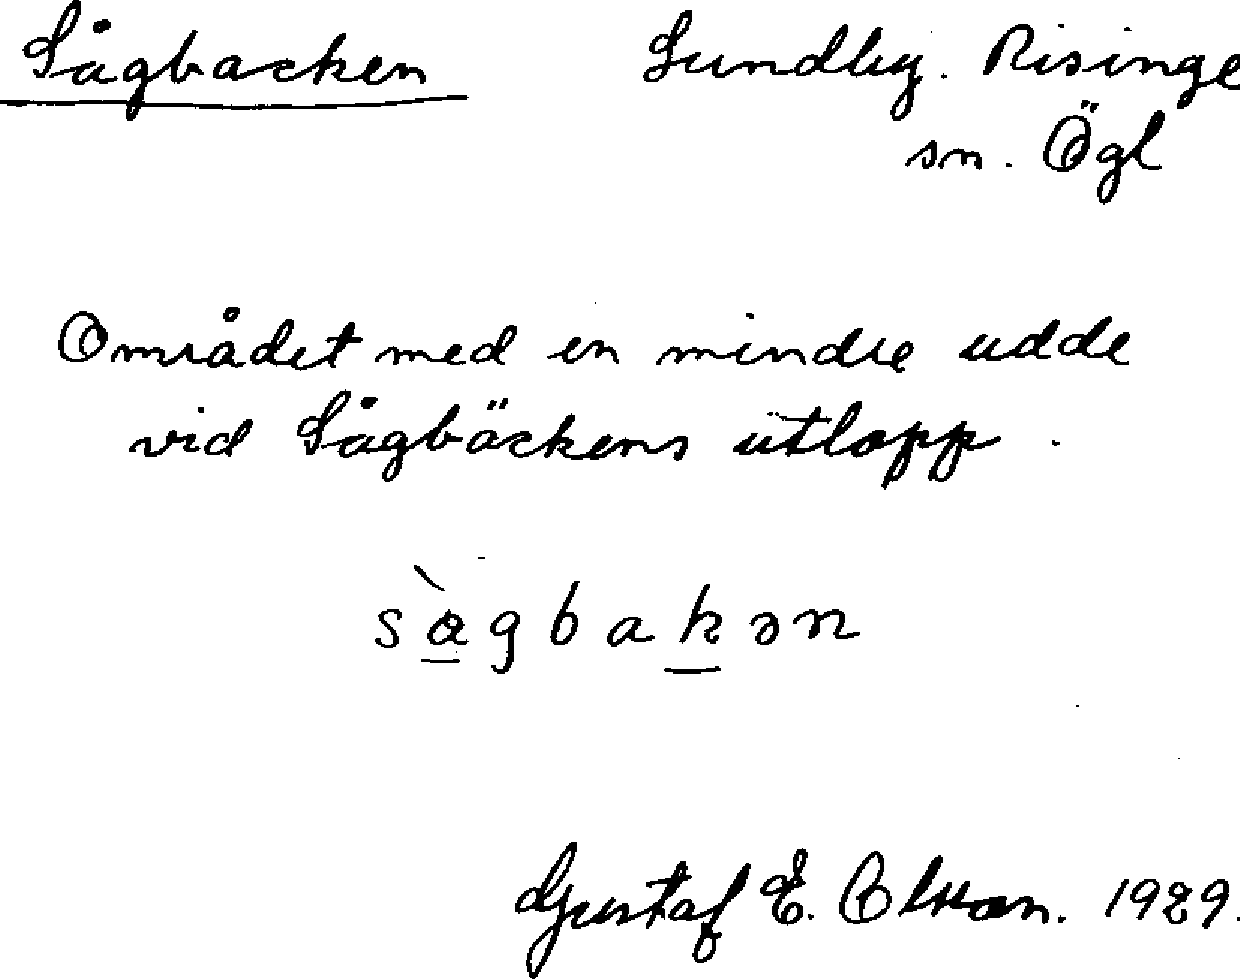 Sågbacken Sundby. Risinge
sn. Ögl
Området med en mindre udde
vid Sågbäckens utlopp.
sàgbakən
Gustaf E. Olsson. 1929.